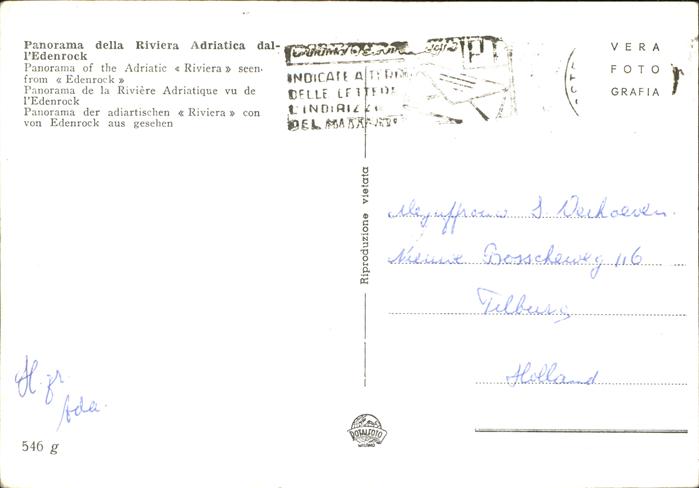 Panorama della Riviera Adriatica dal-
l'Edenrock
Panorama of the Adriatic « Riviera » seen
from « Edenrock »
Panorama de la Rivière Adriatique vu de
l'Edenrock
Panorama der adiartischen « Riviera » con
von Edenrock aus gesehen
INDICATE A TERGO
DELLE LETTERE
L'INDIRIZZO
DEL
VERA
FOTO
GRAFIA
Riproduzione vietata
Mejuffrouw J Verhoeven.
Nieuwe Bosscheweg 116
Tilburg
Holland
H. gr.
Ada.
546 g
ROTALFOTO
MILANO